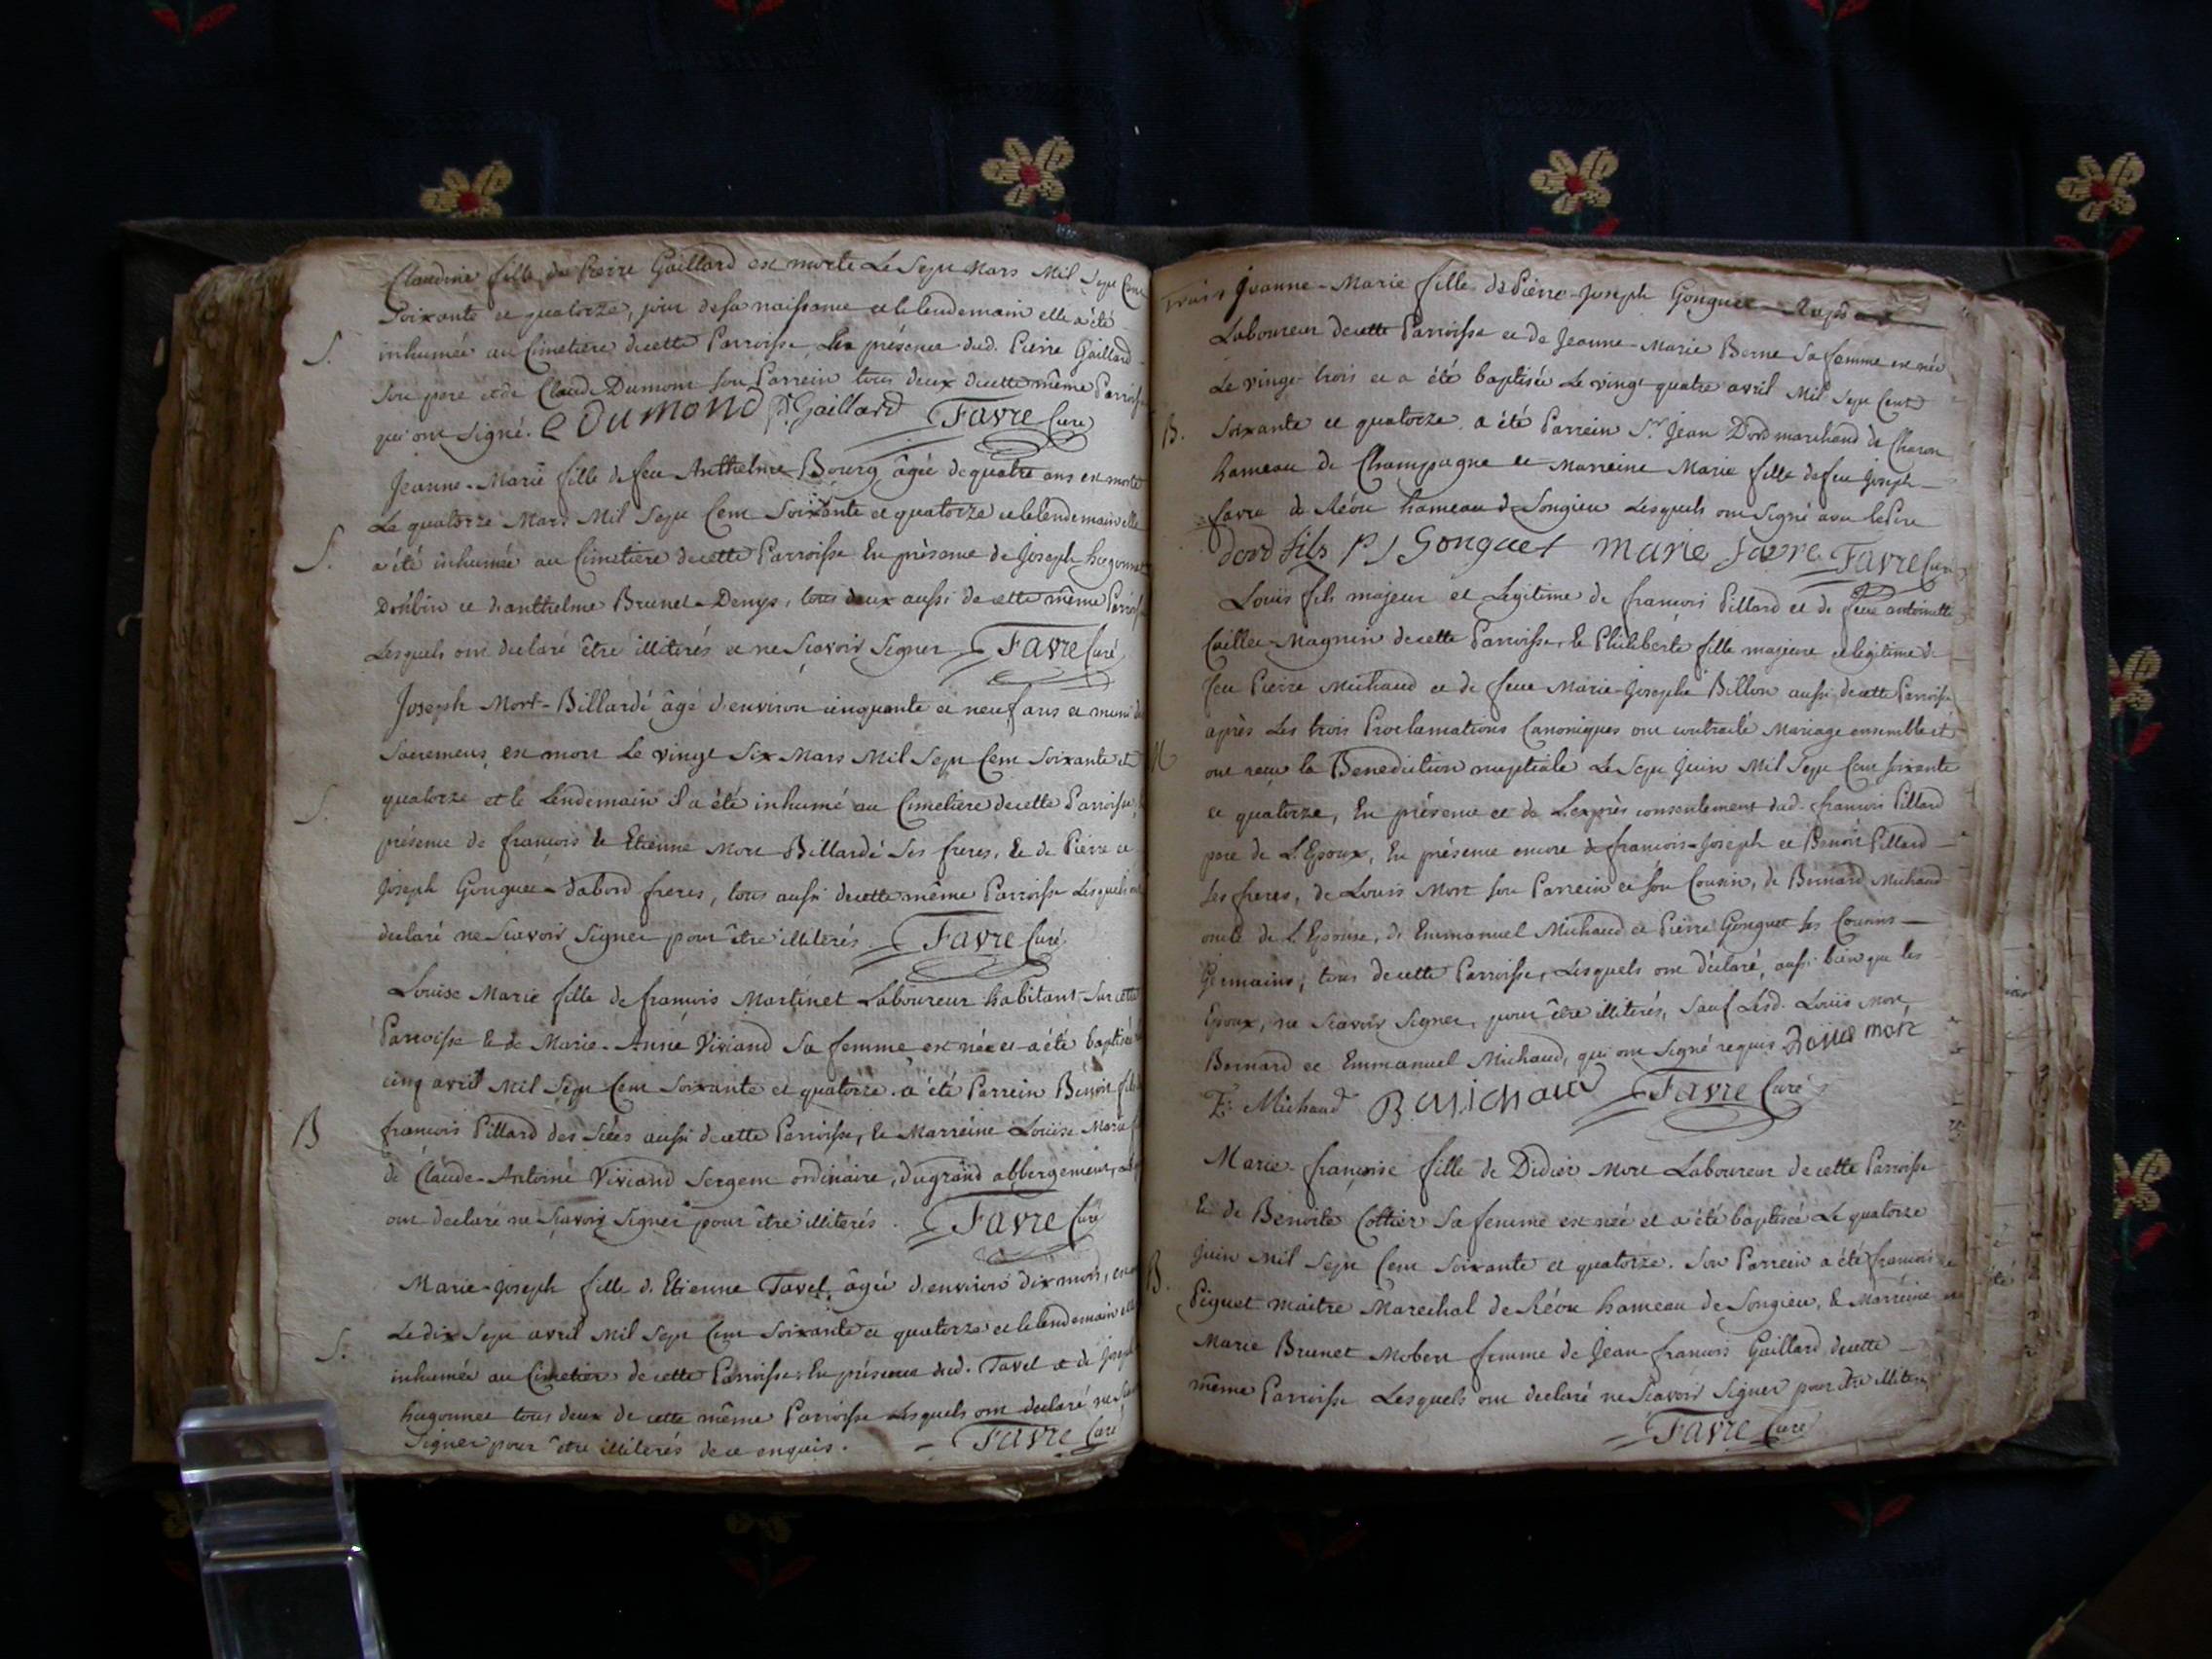 Claudine fille de Pierre Gaillard est morte Le Sept Mars Mil Sept Cent
Soixante et quatorze, jour de sa naissance et le lendemain elle a été
S. inhumée au Cimetiere de cette Parroisse, En présence dud. Pierre Gaillard
son pere et de Claude Dumont son Parrein tous deux de cette même Parroisse
qui ont signé. C Dumond P. Gaillard Favre Curé
Jeanne-Marie fille de feu Anthelme Bourg âgée de quatre ans est morte
Le quatorze Mars Mil Sept Cent Soixante et quatorze et le lendemain elle
S. a été inhumée au Cimetiere de cette Parroisse En présence de Joseph hugonnet
et d'anthelme Brunet-Denys, tous deux aussi de cette même Parroisse
Lesquels ont declaré être illiterés et ne Scavoir Signer. Favre Curé
Joseph Mort-Billardé âgé d'environ cinquante et neuf ans et muni des
Sacremens, est mort Le vingt Six Mars Mil Sept Cent Soixante et
S. quatorze et le Lendemain il a été inhumé au Cimetiere de cette Parroisse,
présence de francois & Etienne Mort Billardé Ses freres, & de Pierre et
Joseph Gonguet-dabord freres, tous aussi de cette même Parroisse Lesquels ont
declaré ne Scavoir Signer pour être illiterés. Favre Curé
Louise Marie fille de francois Martinet Laboureur habitant Sur cette
Parroisse & de Marie-Anne Viviand Sa femme est née et a été baptisée
cinq avril Mil Sept Cent Soixante et quatorze. a été Parrein Benoit fils
B francois Pillard des Siées aussi de cette Parroisse, & Marreine Louise Marie
de Claude-Antoine Viviand Sergent ordinaire, du grand abbergement,
ont declaré ne Scavoir Signer pour être illiterés. Favre Curé
Marie-Joseph fille d'Etienne Tavel, âgée d'environ dix mois, est
S. Le dix Sept avril Mil Sept Cent Soixante et quatorze et le lendemain
inhumée au Cimetiere de cette Parroisse, En présence dud. Tavel et de Joseph
hugonnet tous deux de cette même Parroisse Lesquels ont declaré ne
Signer pour être illiterés de ce enquis. Favre Curé
Jeanne-Marie fille de Pierre-Joseph Gonguet
Laboureur de cette Parroisse et de Jeanne-Marie Berne Sa femme est née
Le vingt trois et a été baptisée Le vingt quatre avril Mil Sept Cent
B. Soixante et quatorze. a été Parrein Sr. Jean Dord marchand de Charon
hameau de Champagne et Marreine Marie fille de feu Joseph
favre de Réon hameau de Songieu Lesquels ont Signé avec le Pere
dord fils PJ Gonguet marie favre Favre Curé
Loüis fils majeur et Légitime de francois Pillard et de feue antoinette
Caillet-Magnin de cette Parroisse, & Philiberte fille majeure et légitime de
feu Pierre Michaud et de feue Marie-Josephe Billon aussi de cette Parroisse
après Les trois Proclamations Canoniques ont contracté Mariage ensemble et
M ont reçu la Benediction nuptiale Le Sept Juin Mil Sept Cent soixante
et quatorze, En présence et de L'exprès consentement dud. francois Pillard
pere de L'Epoux, En présence encore de francois-Joseph et Benoit Pillard
Ses freres, de Louis Mort Son Parrein et son Cousin, de Bernard Michaud
oncle de L'Epouse, de Emmanuel Michaud et Pierre Gonguet Ses Cousins
Germains, tous de cette Parroisse, Lesquels ont déclaré, aussi bien que les
Epoux, ne Scavoir Signer, pour être illiterés, Sauf Lesd. Loüis Mort,
Bernard et Emmanuel Michaud, qui ont Signé requis Loüis mort
E. Michaud B Michaud Favre Curé
Marie-francoise fille de Didier Mort Laboureur de cette Parroisse
& de Benoite Cottier Sa femme est née et a été baptisée Le quatorze
Juin Mil Sept Cent Soixante et quatorze. Son Parrein a été francois
B. Piguet maitre Marechal de Réon hameau de Songieu, & Marreine
Marie Brunet Mobert femme de Jean-francois Gaillard de cette
même Parroisse Lesquels ont declaré ne Scavoir Signer pour être illiterés
Favre Curé